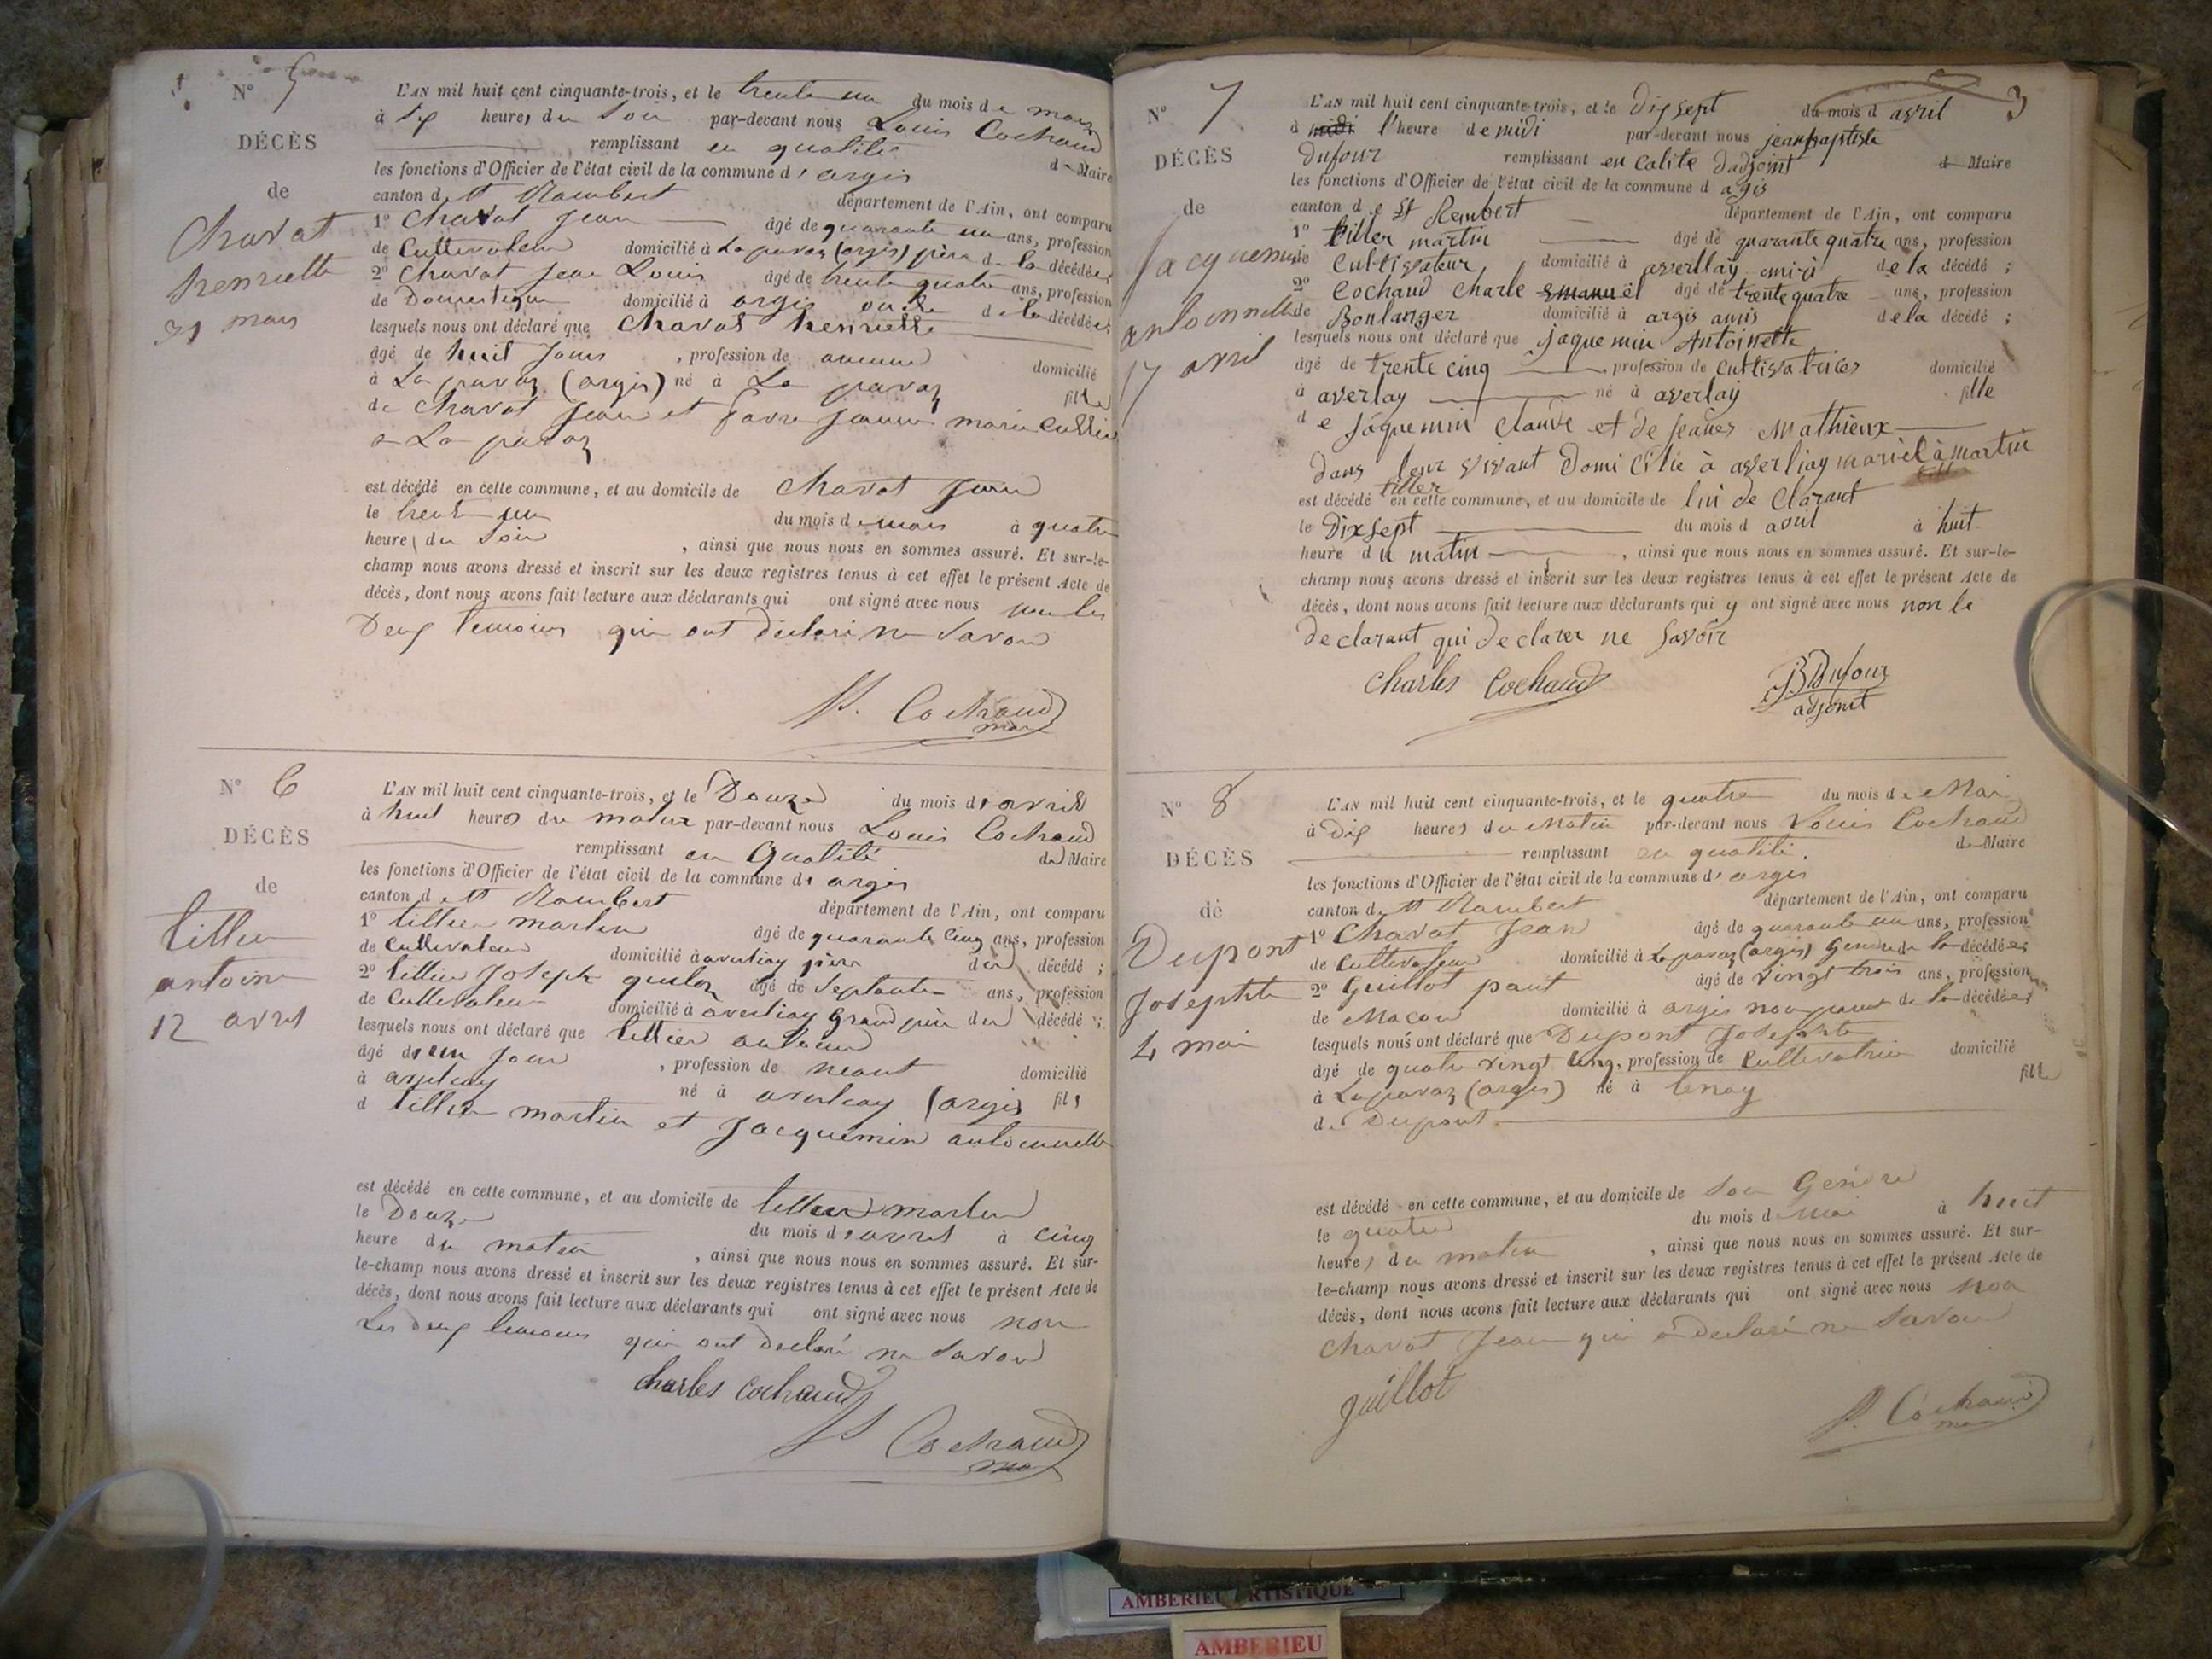 N° 5
DÉCÈS
de
Chavat
henriette
31 mars
L'AN mil huit cent cinquante-trois, et le trente un du mois de mars
à six heures du Soir par-devant nous Louis Cochaud
remplissant en qualité de Maire
les fonctions d'Officier de l'état civil de la commune d'argis
canton de St Rambert département de l'Ain, ont comparu
1° Chavat Jean âgé de quarante un ans, profession
de Cultivateur domicilié à La pavaz (argis) père de la décédée;
2° Chavat Jean Louis âgé de trente quatre ans, profession
de Domestique domicilié à argis oncle de la décédée;
lesquels nous ont déclaré que Chavat henriette
âgé de huit Jours, profession de aucune domicilié
à La pavaz (argis) né à La pavaz fille
de Chavat Jean et favre Jeanne marie Cultiv
a La pavaz
est décédé en cette commune, et au domicile de Chavat Jean
le trente un du mois de mars à quatre
heures du Soir, ainsi que nous nous en sommes assuré. Et sur-le-
champ nous avons dressé et inscrit sur les deux registres tenus à cet effet le présent Acte de
décès, dont nous avons fait lecture aux déclarants qui ont signé avec nous non les
Deux temoins qui ont déclaré ne Savoir
L. Cochaud
maire
N° 6
DÉCÈS
de
tillier
antoine
12 avril
L'AN mil huit cent cinquante-trois, et le Douze du mois d'avril
à huit heures du matin par-devant nous Louis Cochaud
remplissant en Qualité de Maire
les fonctions d'Officier de l'état civil de la commune d'argis
canton de St Rambert département de l'Ain, ont comparu
1° tillier martin âgé de quarante cinq ans, profession
de Cultivateur domicilié à averliay père du décédé;
2° tillier Joseph âgé de Septante ans, profession
de Cultivateur domicilié à averliay Grand père du décédé;
lesquels nous ont déclaré que tillier antoine
âgé d'un Jour, profession de neant domicilié
à averleay né à averleay (argis) fils
d tillier martin et Jacquemin antoinnette
est décédé en cette commune, et au domicile de tillier martin
le Douze du mois d'avril à cinq
heure du matin, ainsi que nous nous en sommes assuré. Et sur-
le-champ nous avons dressé et inscrit sur les deux registres tenus à cet effet le présent Acte de
décès, dont nous avons fait lecture aux déclarants qui ont signé avec nous non
Les deux temoins qui ont declaré ne Savoir
charles cochaud
L. Cochaud
maire
3
N° 7
DÉCÈS
de
jacquemin
antoinnette
17 avril
L'AN mil huit cent cinquante-trois, et le dixsept du mois d avril
à midi l'heure de midi par-devant nous jean baptiste
Dufour remplissant en calite dadjoint d Maire
les fonctions d'Officier de l'état civil de la commune d agis
canton de St Rembert département de l'Ain, ont comparu
1° tiller martin âgé de quarante quatre ans, profession
de Cultivateur domicilié à averllay mari de la décédé;
2° Cochaud Charle emanuel âgé de trente quatre ans, profession
de Boulanger domicilié à argis amis de la décédé;
lesquels nous ont déclaré que jaquemin Antoinette
âgé de trente cinq, profession de cultivatrices domicilié
à averlay né à averlay fille
de jaquemin claude et de jeanes Mathieux
dans leur vivant Domicilie à averliay mariel à martin
tiller
est décédé en cette commune, et au domicile de lui de clarant
le Dixsept du mois d aoul à huit
heure du matin, ainsi que nous nous en sommes assuré. Et sur-le-
champ nous avons dressé et inscrit sur les deux registres tenus à cet effet le présent Acte de
décès, dont nous avons fait lecture aux déclarants qui y ont signé avec nous non le
declarant qui declarer ne savoir
Charles Cochaud
JB Dufour
adjoint
N° 8
DÉCÈS
de
Dupont
Josephte
4 mai
L'AN mil huit cent cinquante-trois, et le quatre du mois de Mai
à dix heures du Matin par-devant nous Louis Cochaud
remplissant en qualité. de Maire
les fonctions d'Officier de l'état civil de la commune d'argis
canton de St Rambert département de l'Ain, ont comparu
1° Chavat Jean âgé de quarante un ans, profession
de Cultivateur domicilié à La pavaz (argis) Gendre de la décédée;
2° Guillot paul âgé de vingt trois ans, profession
de Macon domicilié à argis non parent de la décédée;
lesquels nous ont déclaré que Dupont Josephte
âgé de quatre vingt cinq, profession de Cultivatrice domicilié
à La pavaz (argis) né à tenay fille
de Dupont
est décédé en cette commune, et au domicile de Son Gendre
le quatre du mois de Mai à huit
heures du matin, ainsi que nous nous en sommes assuré. Et sur-
le-champ nous avons dressé et inscrit sur les deux registres tenus à cet effet le présent Acte de
décès, dont nous avons fait lecture aux déclarants qui ont signé avec nous non
Chavat Jean qui a declaré ne Savoir
guillot
L. Cochaud
maire
AMBERIEU ARTISTIQUE
AMBERIEU